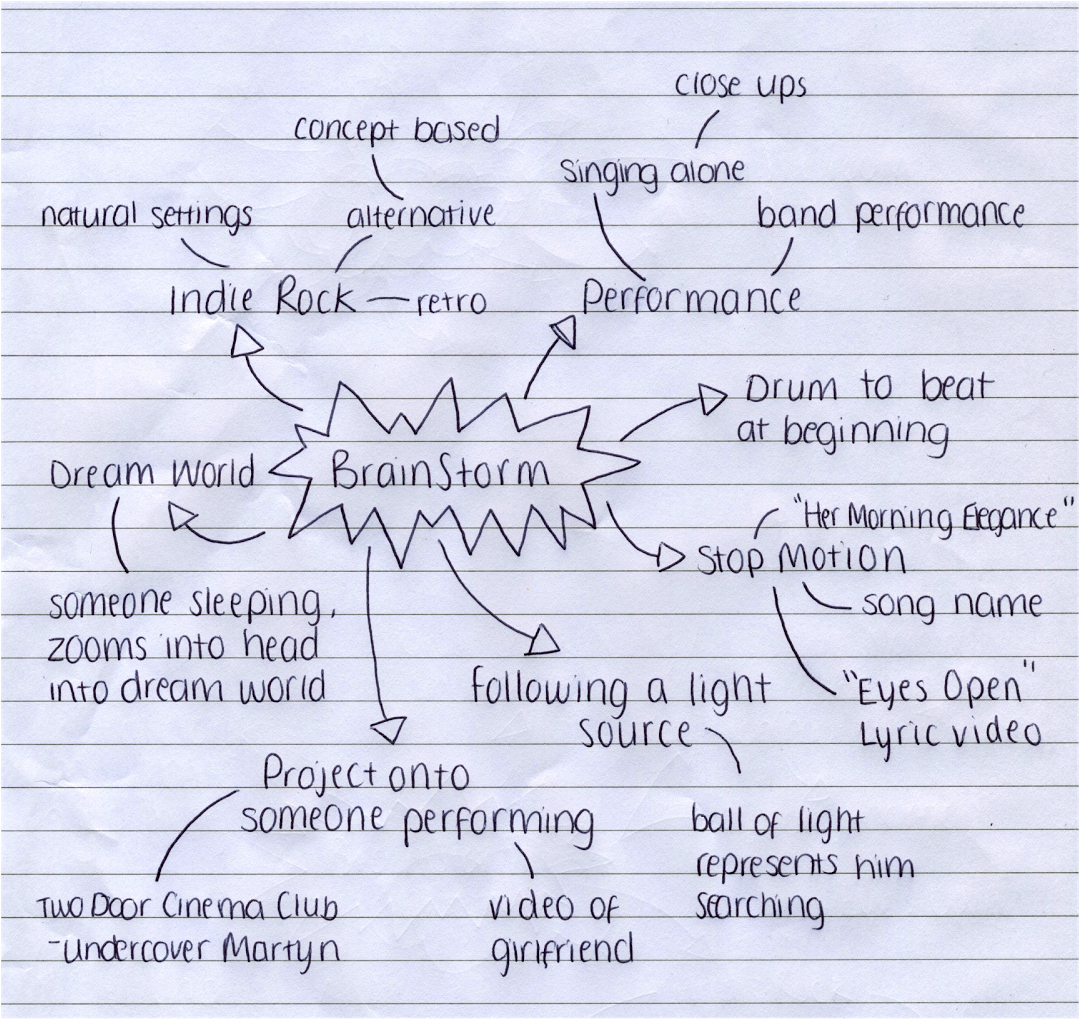 close ups
concept based
singing alone
natural settings
alternative
band performance
Indie Rock
retro
Performance
Drum to beat
at beginning
Dream World
BrainStorm
"Her Morning Elegance"
Stop Motion
song name
someone sleeping,
zooms into head
into dream world
following a light
source
"Eyes Open"
Lyric video
Project onto
someone performing
ball of light
represents him
searching
Two Door Cinema Club
-undercover Martyn
video of
girlfriend